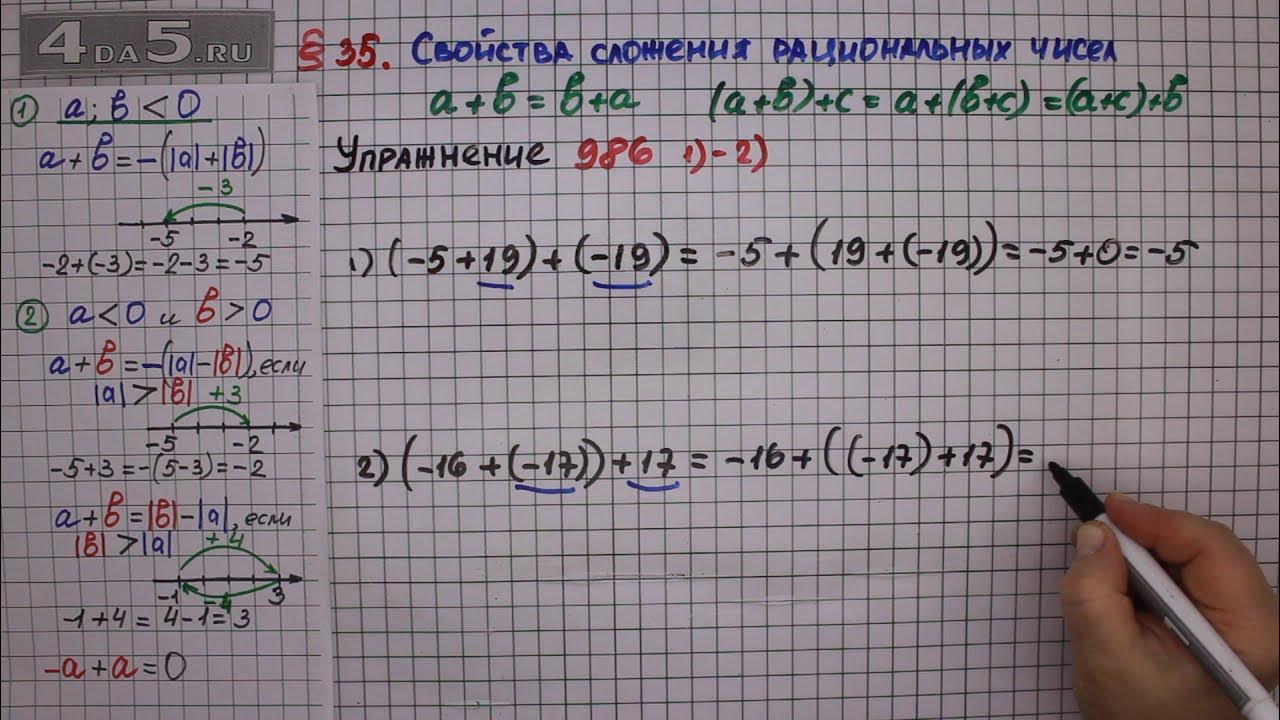 4DA5.RU
§ 35. Свойства сложения рациональных чисел
a+b=b+a (a+b)+c=a+(b+c)=(a+c)+b
Упражнение 986 1)-2)
1) (-5+19)+(-19)= -5+(19+(-19))=-5+0=-5
2) (-16+(-17))+17=-16+((-17)+17)=
① a; b<0
a+b=-(|a|+|b|)
-3
-5 -2
-2+(-3)=-2-3=-5
② a<0 и b>0
a+b=-(|a|-|b|), если
|a|>|b| +3
-5 -2
-5+3=-(5-3)=-2
a+b=|b|-|a|, если
|b|>|a| +4
-1 -4 3
-1+4=4-1=3
-a+a=0